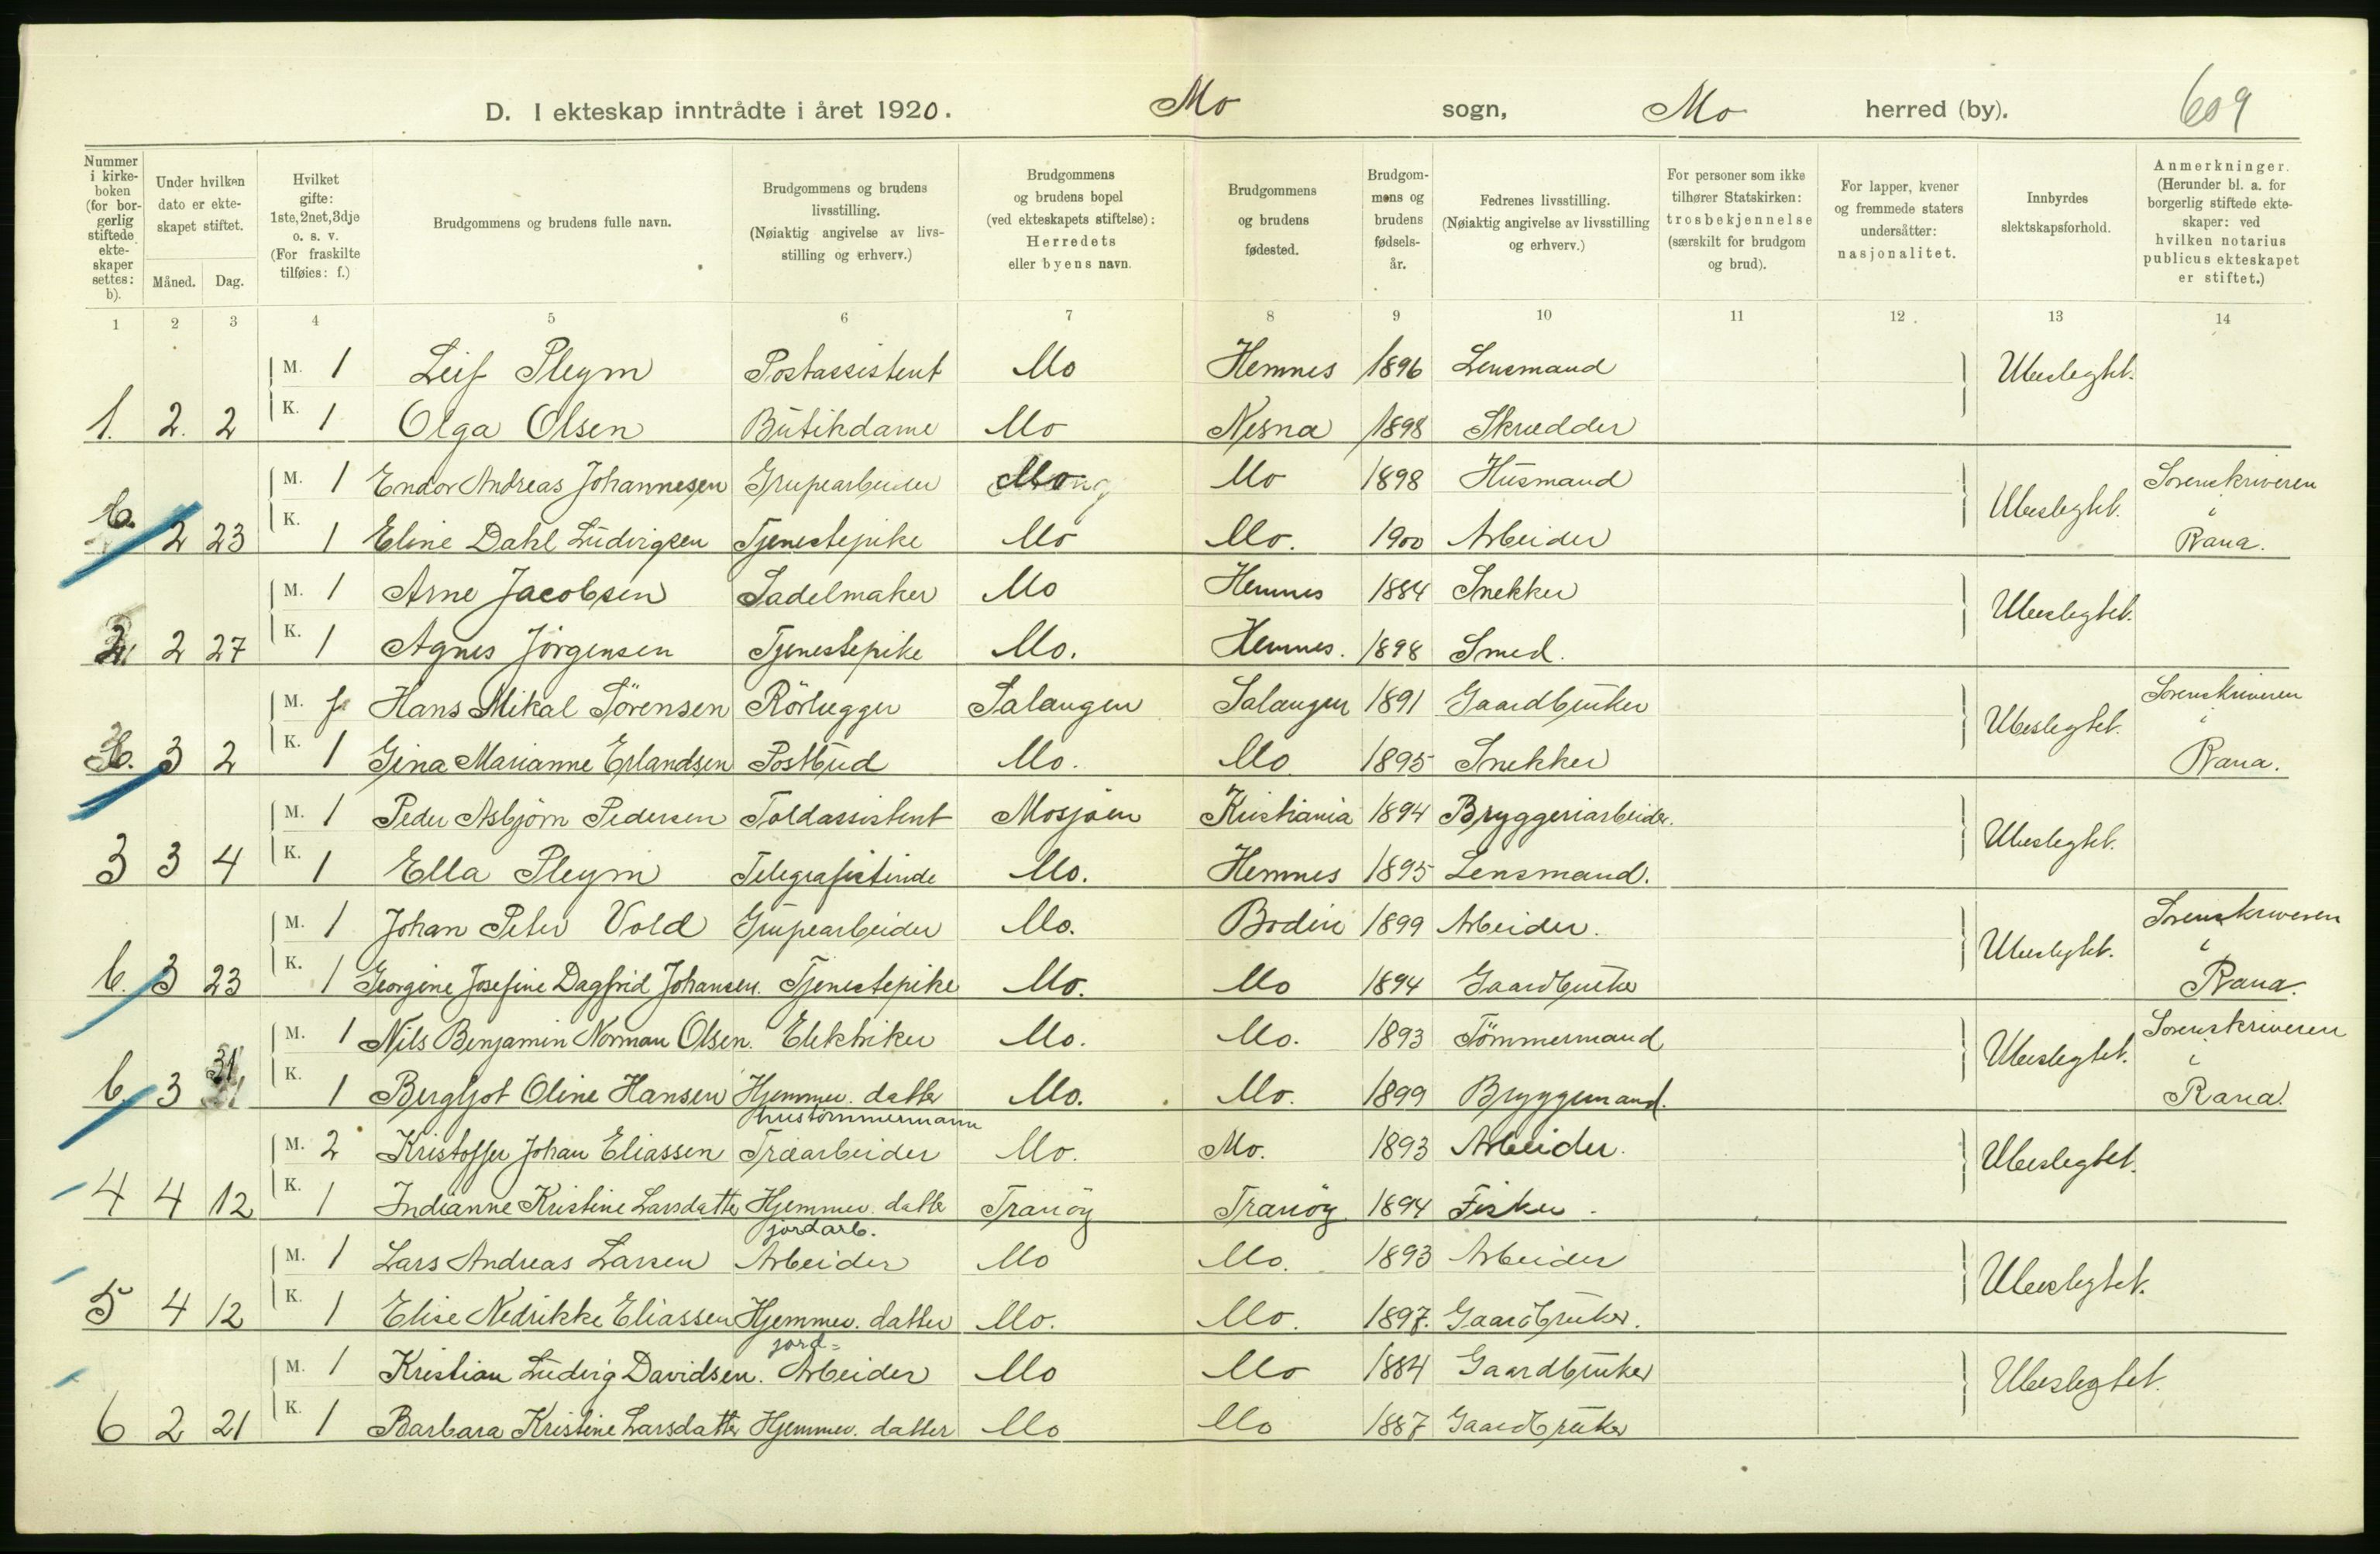 D. I ekteskap inntrådte i året 1920. Mo sogn, Mo herred (by). 609
Nummer i kirkeboken (for borgerlig stiftede ekteskaper settes: b).
Under hvilken dato er ekteskapet stiftet.
Måned. Dag.
Hvilket gifte: 1ste, 2net, 3dje o. s. v. (For fraskilte tilføies: f.)
Brudgommens og brudens fulle navn.
Brudgommens og brudens livsstilling. (Nøiaktig angivelse av livsstilling og erhverv.)
Brudgommens og brudens bopel (ved ekteskapets stiftelse): Herredets eller byens navn.
Brudgommens og brudens fødested.
Brudgommens og brudens fødselsår.
Fedrenes livsstilling. (Nøiaktig angivelse av livsstilling og erhverv.)
For personer som ikke tilhører Statskirken: trosbekjennelse (særskilt for brudgom og brud).
For lapper, kvener og fremmede staters undersåtter: nasjonalitet.
Innbyrdes slektskapsforhold.
Anmerkninger. (Herunder bl. a. for borgerlig stiftede ekteskaper: ved hvilken notarius publicus ekteskapet er stiftet.)
1 2 3 4 5 6 7 8 9 10 11 12 13 14
M. 1 Leif Pleym Postassistent Mo Hemnes 1896 Lensmand Ubeslegtet.
1. 2. 2 K. 1 Olga Olsen Butikdame Mo Nesna 1898 Skrædder
M. 1 Endor Andreas Johannesen Grupearbeider Mo Mo 1898 Husmand Ubeslegtet. Sorenskriveren i Rana.
b. 2 23 K. 1 Eline Dahl Ludvigsen Tjenestepike Mo Mo. 1900 Arbeider
M. 1 Arne Jacobsen Sadelmaker Mo Hemnes 1884 Snekker Ubeslegtet.
2. 2 27 K. 1 Agnes Jörgensen Tjenestepike Mo. Hemnes. 1898 Smed.
M. f. Hans Mikal Sörensen Rörlægger Salangen Salangen 1891 Gaardbruker Ubeslegtet. Sorenskriveren i Rana.
b. 3 2 K. 1 Gina Marianne Erlandsen Postbud Mo. Mo 1895 Snekker
M. 1 Peder Asbjörn Pedersen Toldassistent Mosjöen Kristiania 1894 Bryggeriarbeider. Ubeslegtet.
3 3 4 K. 1 Ella Pleym Telegrafistinde Mo. Hemnes 1895 Lensmand.
M. 1 Johan Peter Vold Grupearbeider Mo. Bodin 1899 Arbeider. Ubeslegtet. Sorenskriveren i Rana.
b. 3 23 K. 1 Georgine Josefine Dagfrid Johansen. Tjenestepike Mo. Mo 1894 Gaardbruker
M. 1 Nils Benjamin Norman Olsen. Elektriker Mo. Mo. 1893 Tömmermand Ubeslegtet. Sorenskriveren i Rana.
b. 3 31 K. 1 Bergljot Oline Hansen Hjemmev. datter Mo. Mo. 1899 Bryggemand.
hustömmermann
M. 2 Kristoffer Johan Eliassen Træarbeider Mo. Mo. 1893 Arbeider. Ubeslegtet.
4 4 12 K. 1 Indianne Kristine Larsdatter Hjemmev. datter Tranöy Tranöy 1894 Fisker.
jordarb.
M. 1 Lars Andreas Larsen Arbeider Mo Mo. 1893 Arbeider Ubeslegtet.
5 4 12 K. 1 Elise Nedrikke Eliassen Hjemmev. datter Mo. Mo. 1897. Gaardbruker.
jord=
M. 1 Kristian Ludvig Davidsen. Arbeider Mo Mo 1884 Gaardbruker Ubeslegtet.
6 2 21 K. 1 Barbara Kristine Larsdatter Hjemmev. datter Mo Mo 1887 Gaardbruker